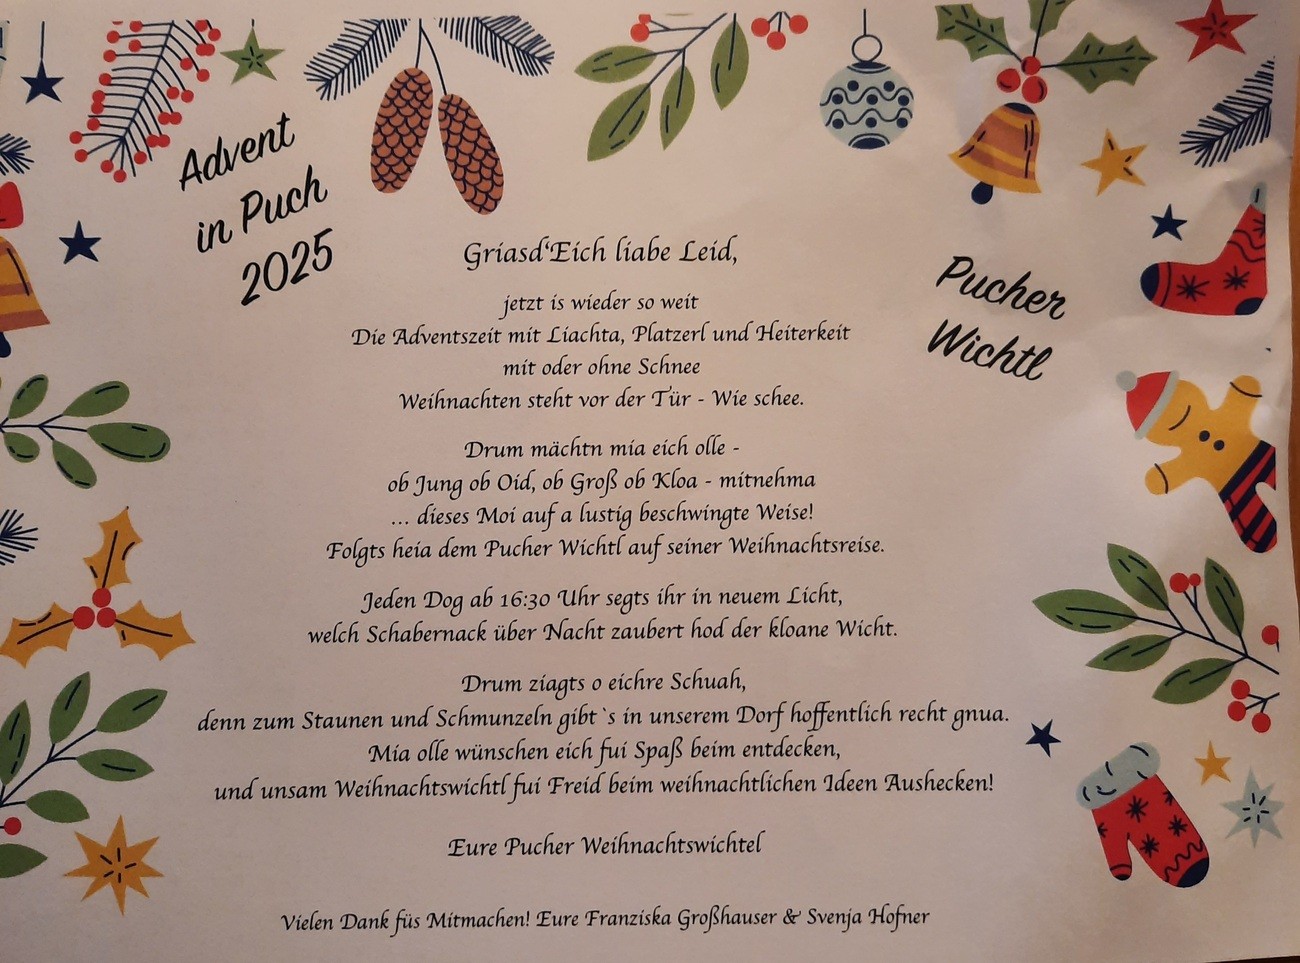 Advent
in Puch
2025
Pucher
Wichtl
Griasd'Eich liabe Leid,
jetzt is wieder so weit
Die Adventszeit mit Liachta, Platzerl und Heiterkeit
mit oder ohne Schnee
Weihnachten steht vor der Tür - Wie schee.
Drum mächtn mia eich olle -
ob Jung ob Oid, ob Groß ob Kloa - mitnehma
... dieses Moi auf a lustig beschwingte Weise!
Folgts heia dem Pucher Wichtl auf seiner Weihnachtsreise.
Jeden Dog ab 16:30 Uhr segts ihr in neuem Licht,
welch Schabernack über Nacht zaubert hod der kloane Wicht.
Drum ziagts o eichre Schuah,
denn zum Staunen und Schmunzeln gibt`s in unserem Dorf hoffentlich recht gnua.
Mia olle wünschen eich fui Spaß beim entdecken,
und unsam Weihnachtswichtl fui Freid beim weihnachtlichen Ideen Aushecken!
Eure Pucher Weihnachtswichtel
Vielen Dank füs Mitmachen! Eure Franziska Großhauser & Svenja Hofner